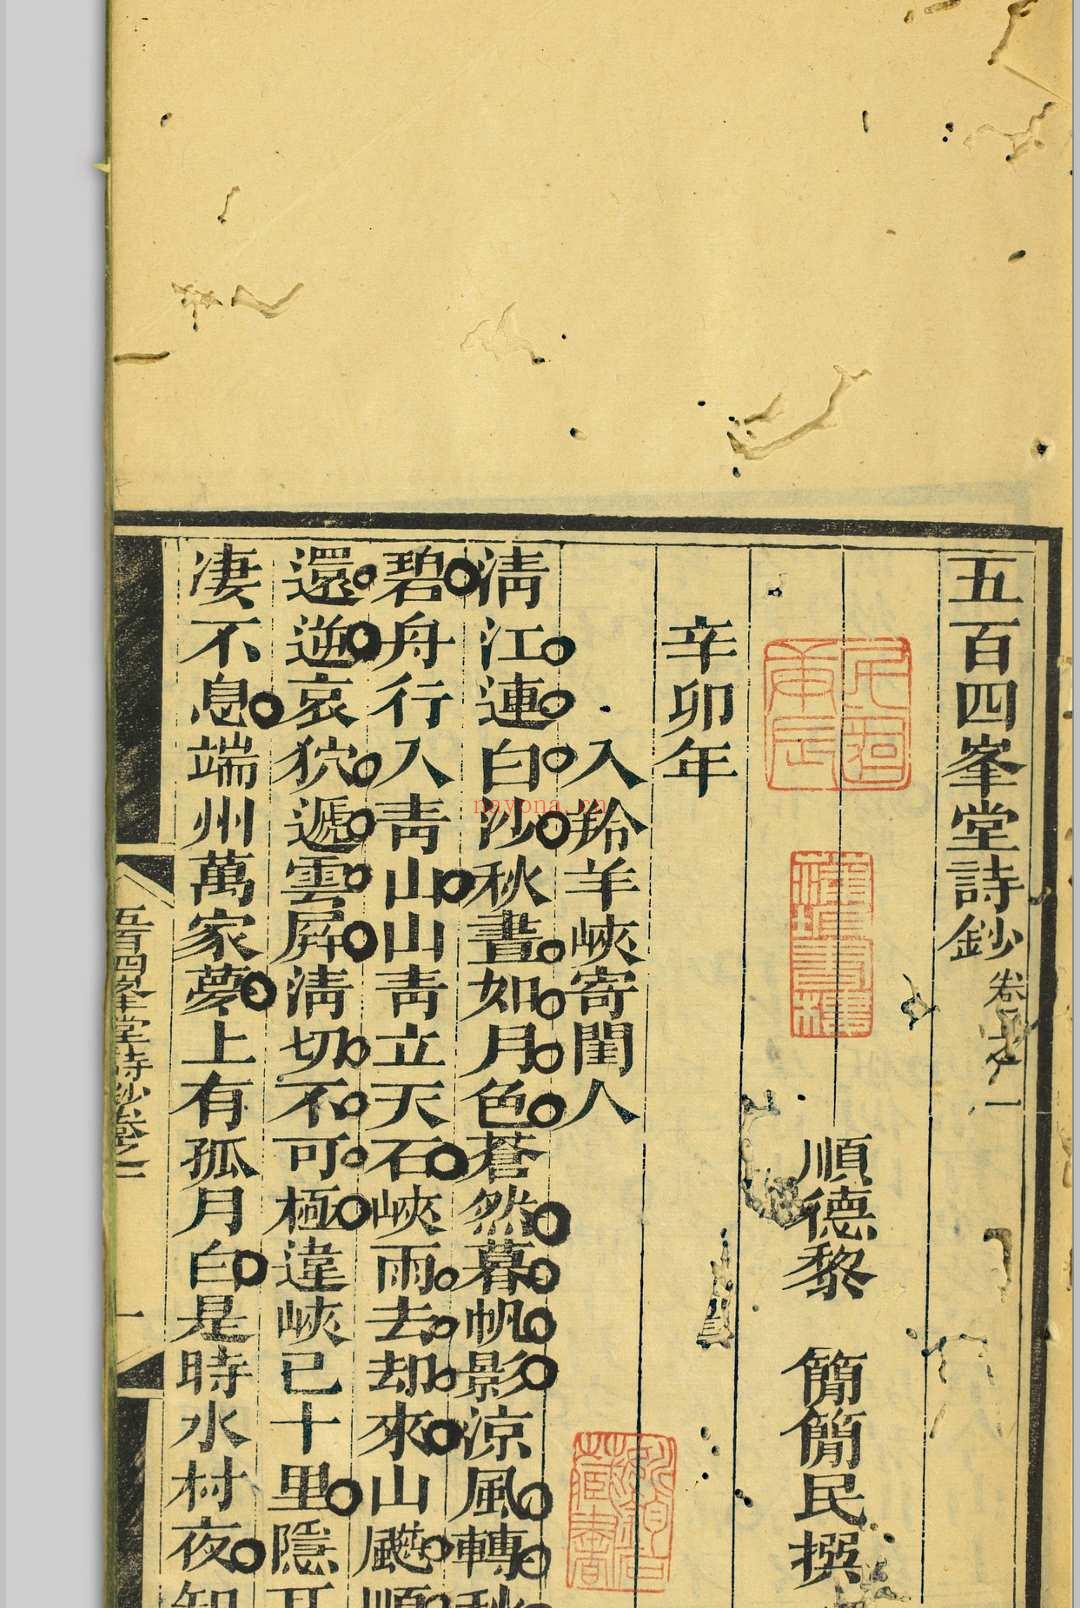 五百四峯堂詩鈔 卷之一
順德黎 簡簡民撰
辛卯年
入羚羊峽寄閨人
清江連白沙秋晝如月色蒼然暮帆影涼風轉秋
碧舟行入青山山青立天石峽雨去却來山飈順
還逆哀狖遞雲屏清切不可極違峽已十里隱耳
凄不息端州萬家夢上有孤月白是時水村夜知
五百四峯堂詩鈔卷之一
一
藏書
nayona.cn